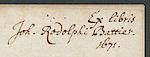 Ex libris
Joh. Rodolphi Battier.
1671.